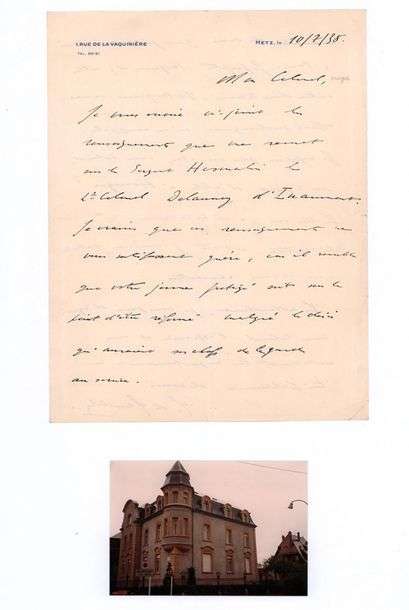 1, RUE DE LA VAQUINIÈRE METZ, le 10/7/38.
TEL.
Mon Colonel,
Je vous envoie ci-joint les
renseignements que me remet
sur le Sergent le
Lt Colonel Delaunay d'
Je crains que ces renseignements ne
vous satisfassent guère, car il semble
que votre jeune protégé soit sur le
point d'être réformé malgré le désir
qu'auraient ses chefs de le garder
au